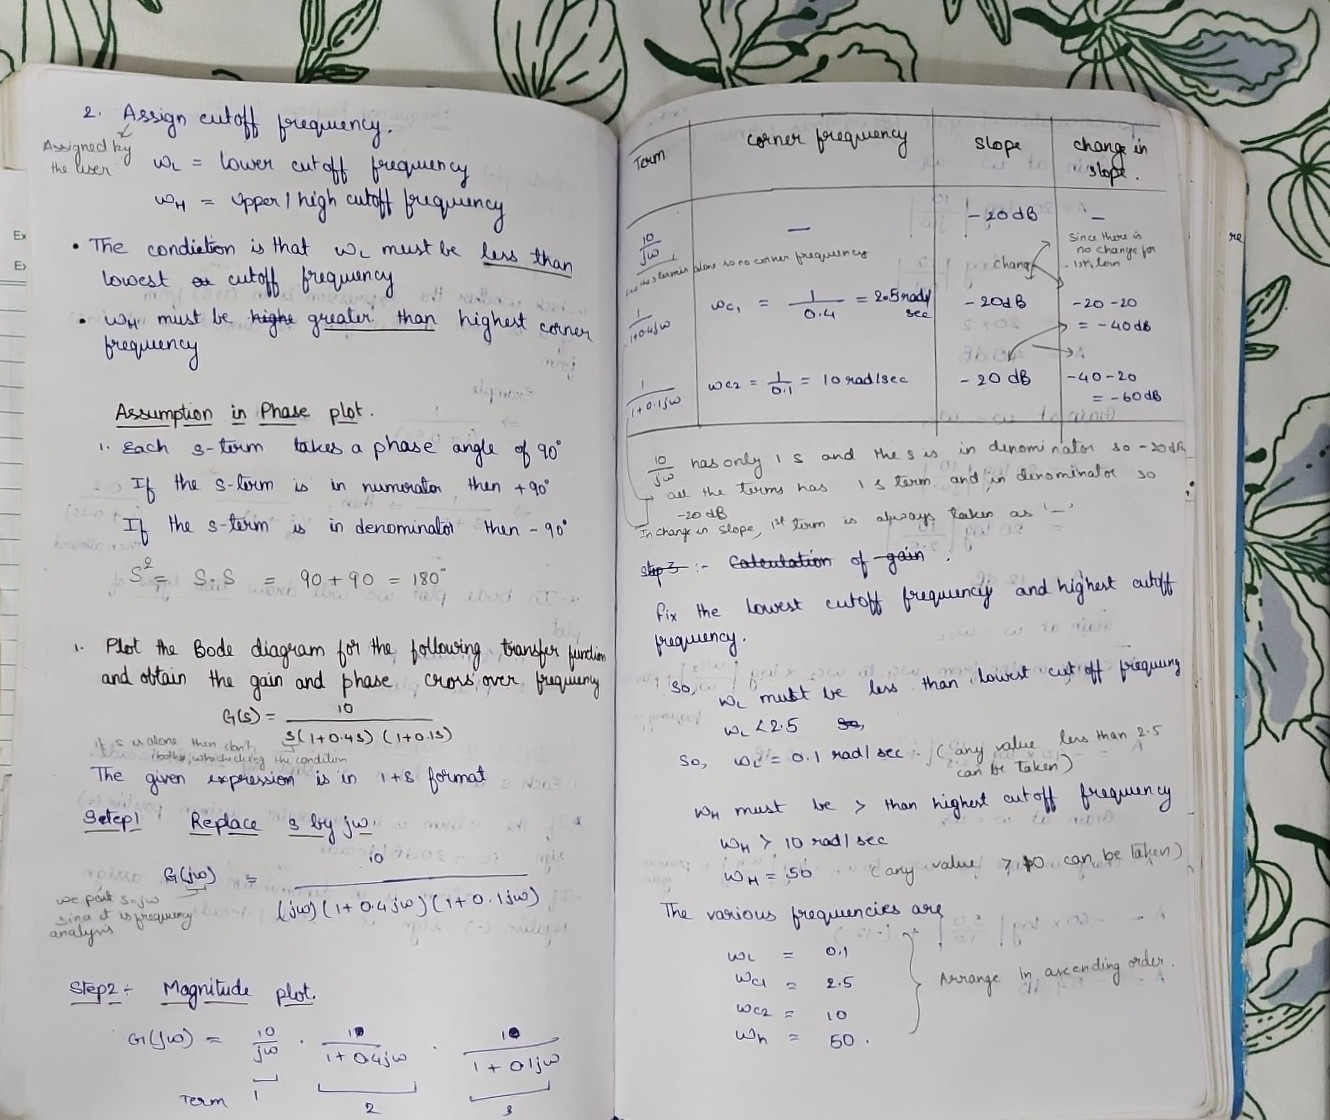 2. Assign cutoff frequency.
Assigned by
the user
ωL = lower cutoff frequency
ωH = upper / high cutoff frequency
• The condiction is that ωL must be less than
lowest cutoff frequency
• ωH must be highe greater than highest corner
frequency
Assumption in Phase plot.
1. Each s-term takes a phase angle of 90°
If the s-term is in numerator then +90°
If the s-term is in denominator then -90°
S² = S.S = 90+90 = 180°
1. Plot the Bode diagram for the following transfer function
and obtain the gain and phase cross over frequency
G(s) = 10 / s(1+0.4s) (1+0.1s)
if s is alone then don't
bother checking the condition
The given expression is in 1+s format
Setep1 Replace s by jω.
G(jω) = 10 / (jω)(1+0.4jω)(1+0.1jω)
we put s=jω
since it is frequency
analysis
Step2:- Magnitude plot.
G(jω) = 10/jω . 10/1+0.4jω . 10/1+0.1jω
Term 1 2 3
Term corner frequency slope change in
slope.
10/jω — -20dB —
alone so no corner frequency
Since there is
no change for
1st term
change
1/1+0.4jω ωc1 = 1/0.4 = 2.5 rad/sec -20dB -20-20
= -40db
1/1+0.1jω ωc2 = 1/0.1 = 10 rad/sec -20dB -40-20
= -60db
10/jω has only 1 s and the s is in denominator so -20dB
all the terms has 1 s term and in denominator so
-20dB
In change in slope, 1st term is always taken as '—'
Step3 :- Calculation of gain.
Fix the lowest cutoff frequency and highest cutoff
frequency.
So, ωL must be less than lowest cut off frequency
ωL < 2.5 so,
So, ωL = 0.1 rad/sec (any value less than 2.5
can be taken)
ωH must be > than highest cutoff frequency
ωH > 10 rad/sec
ωH = 50 (any value > 10 can be taken)
The various frequencies are
ωL = 0.1
ωc1 = 2.5
ωc2 = 10
ωh = 50.
Arrange in ascending order.
re